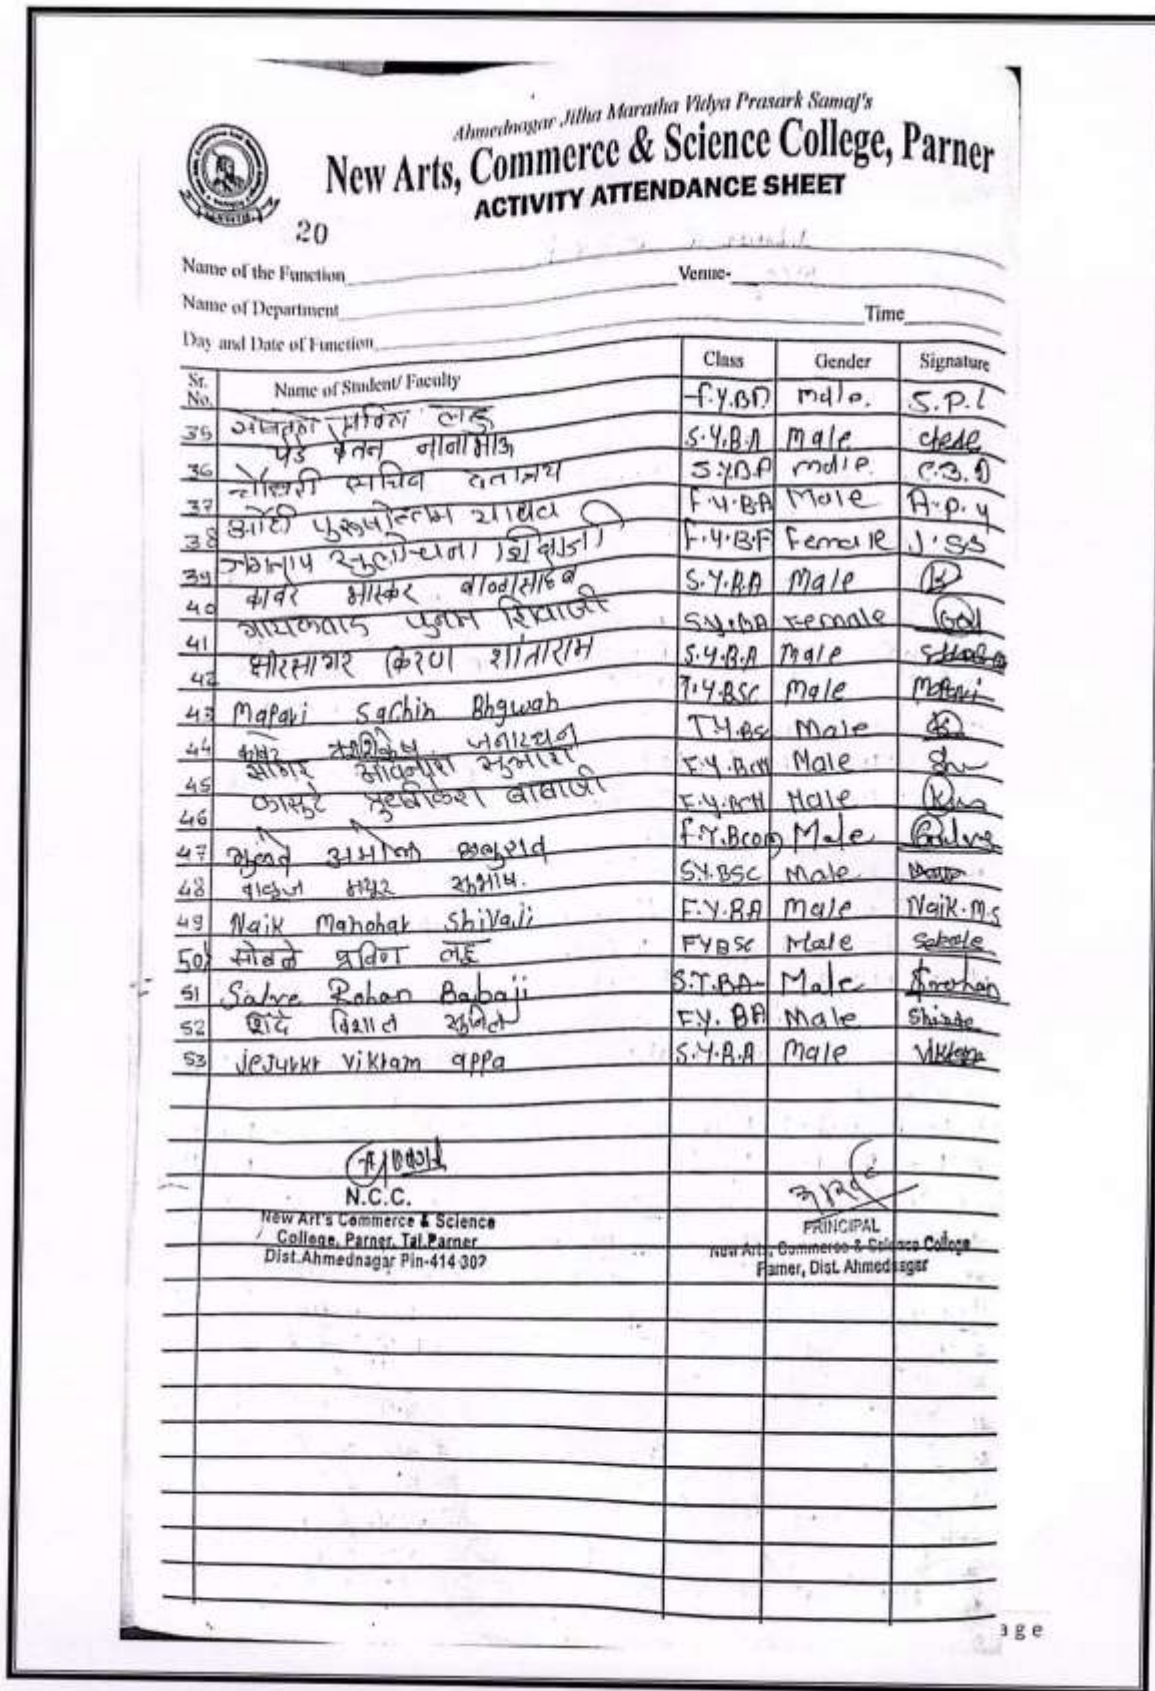 Ahmednagar Jilha Maratha Vidya Prasark Samaj's
New Arts, Commerce & Science College, Parner
ACTIVITY ATTENDANCE SHEET
20
Name of the Function Venue-
Name of Department Time
Day and Date of Function
Sr. No. Name of Student/ Faculty Class Gender Signature
35 लहु F.Y.BA male. S.P.L
36 चेतन नानाभाऊ S.Y.B.A male
37 चौधरी सचिव दत्तात्रय S.Y.B.A male. C.B.D
38 औटी पुरुषोत्तम यादव F.Y.BA Male A.P.Y
39 जगताप सुलोचना शिवाजी F.Y.B.A Female J.SS
40 कावरे भास्कर बाळासाहेब S.Y.B.A Male
41 गायकवाड पुनम शिवाजी S.Y.BA Female
42 क्षीरसागर किरण शांताराम S.Y.B.A Male
43 Mapari Sachin Bhgwan T.Y.BSC Male Mapari
44 कावरे ऋषिकेष जनारधन T.Y.BSC Male
45 अविनाश सुभाश F.Y.BCM Male
46 कासुटे बाबाजी F.Y.BCM Male
47 अमोल F.Y.Bcom Male
48 वाळुंज मयूर सुभाष. S.Y.BSC Male
49 Naik Manohar Shivaji F.Y.BA Male Naik.M.S
50 सोबले प्रविण लहु FYBSC Male Sabale
51 Salve Rohan Babaji S.Y.BA Male Srohan
52 शिंदे विशाल सुनिल F.Y. BA Male Shinde
53 Jejurkr Vikram appa S.Y.B.A Male Vikram
N.C.C.
New Art's Commerce & Science
College, Parner, Tal.Parner
Dist.Ahmednagar Pin-414 302
PRINCIPAL
New Arts, Commerce & Science College
Parner, Dist. Ahmednagar
age